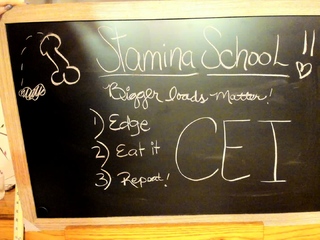 Stamina School!!
Bigger loads Matter!
1) Edge
2) Eat it
3) Repeat!
CEI